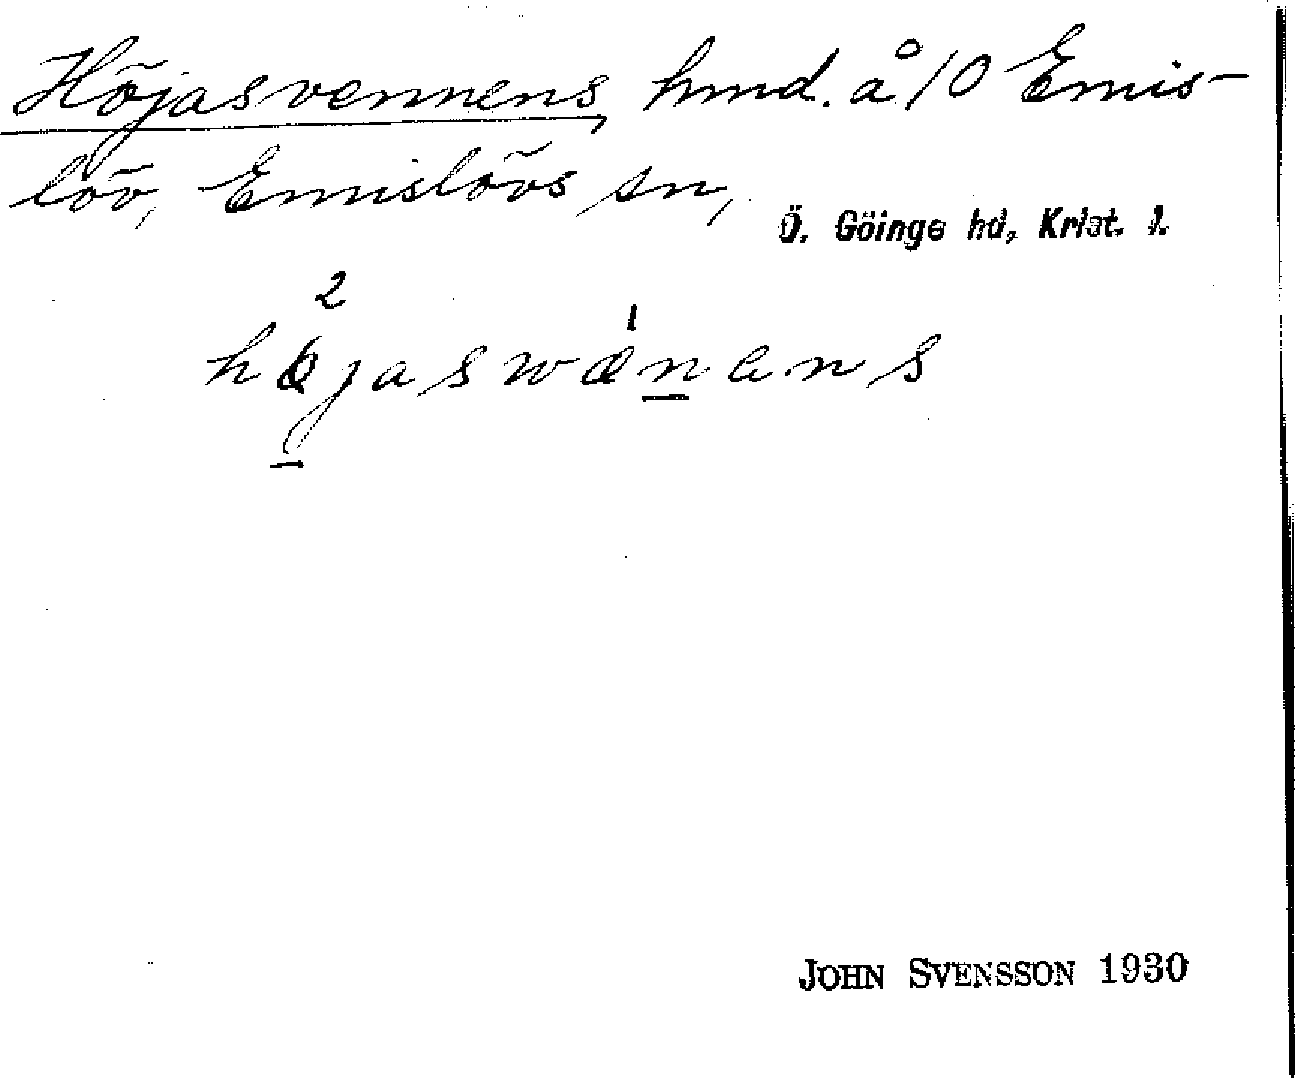 Höjasvennens, hmd. å 10 Emis-
löv, Emislövs sn,
Ö. Göinge hd, Krist. l.
2 1
höjaswænans
JOHN SVENSSON 1930